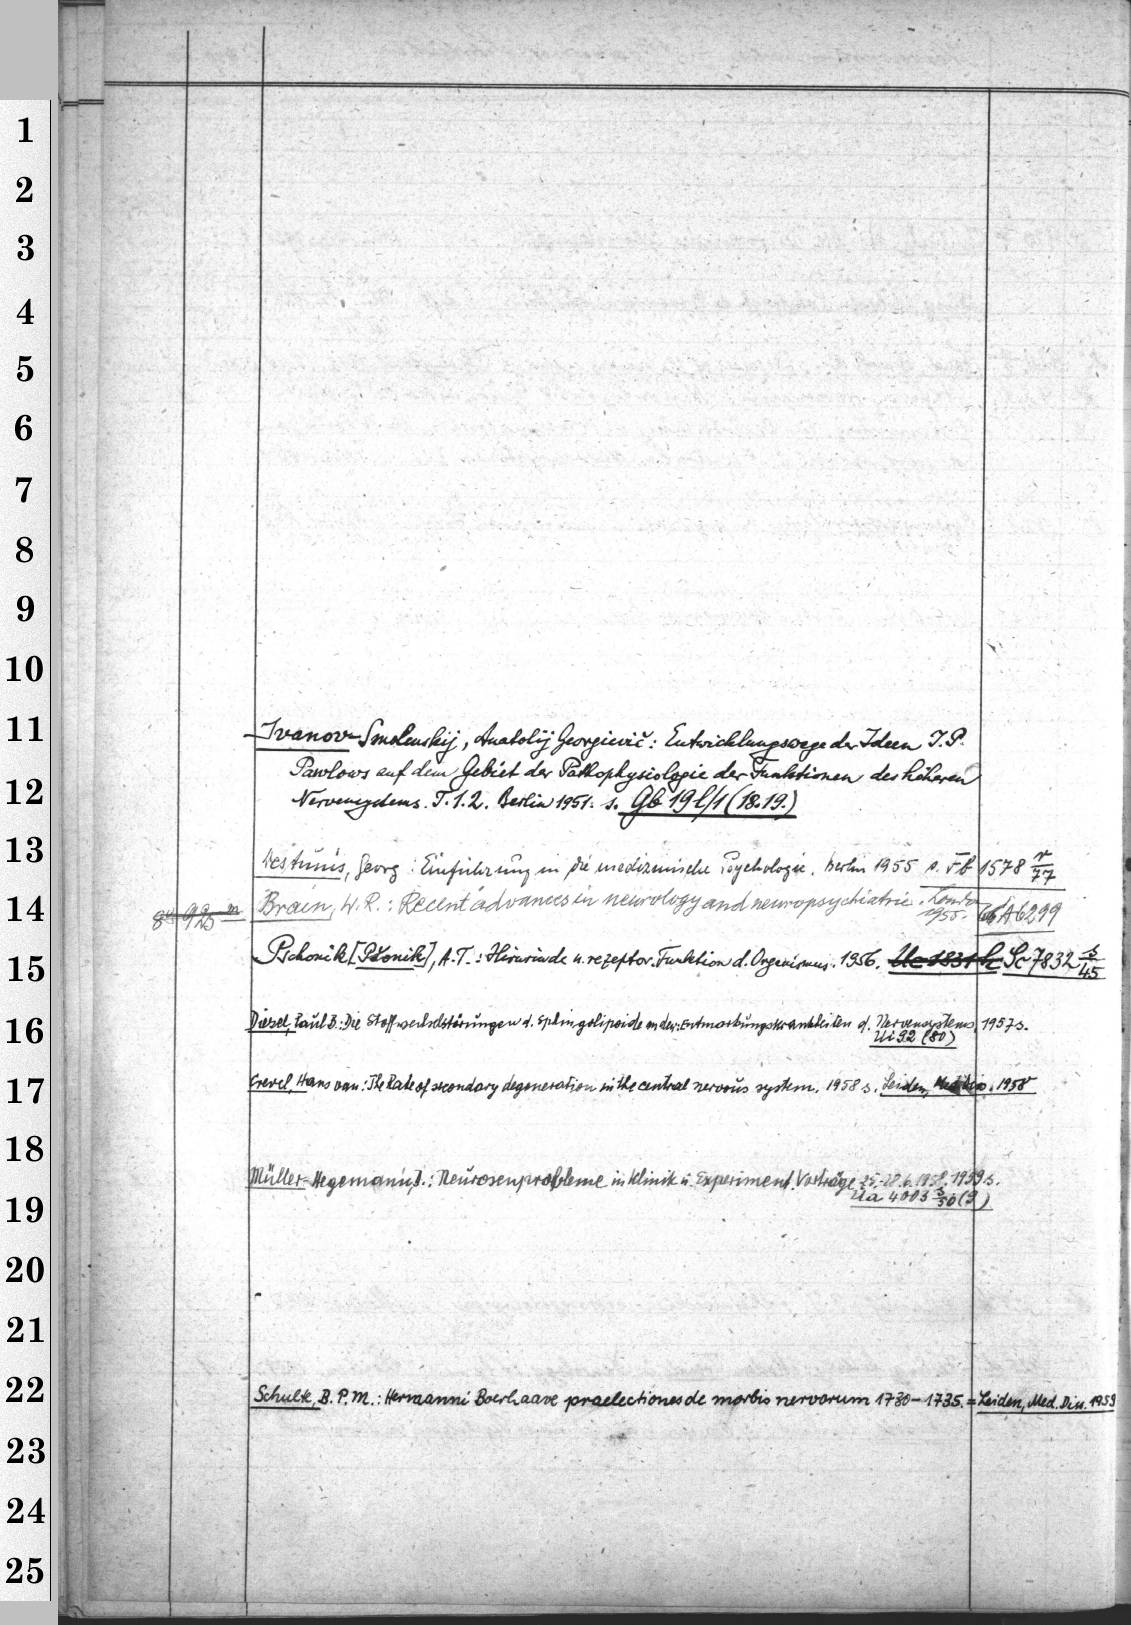 1
2
3
4
5
6
7
8
9
10
11
12
13
14
15
16
17
18
19
20
21
22
23
24
25
Ivanov-Smolenskij, Anatolij Georgievič: Entwicklungswege der Ideen I.P.
Pawlows auf dem Gebiet der Pathophysiologie der Funktionen des höheren
Nervensystems. T.1.2. Berlin 1951. s. Gb 19 l/1 (18.19.)
Destunis, Georg: Einführung in die medizinische Psychologie. Berlin 1955 s. Fb 1578 r/77
8° 925 m Brain, W.R.: Recent advances in neurology and neuropsychiatrie. London
1955. A6299
Pschonik [Pšonik], A.T.: Hirnrinde u. rezeptor. Funktion d. Organismus. 1956. Uc 1831 k Sc 7832 s/45
Diezel, Paul B.: Die Stoffwechselstörungen d. Sphingolipoide Entmarkungskrankheiten d. Nervensystems. 1957 s.
Ui 92 (80)
Crevel, Hans van: The Rate of secondary degeneration in the central nervous system. 1958 s. Leiden, 1958
Müller-Hegemann, D.: Neurosenprobleme in Klinik u. Experiment. Vorträge 25.-28.6.1958. 1959 s.
Ua 4003 s/50 (9)
Schulte, B.P.M.: Hermanni Boerhaave praelectiones de morbis nervorum 1730–1735. = Leiden, Med. Diss. 1959